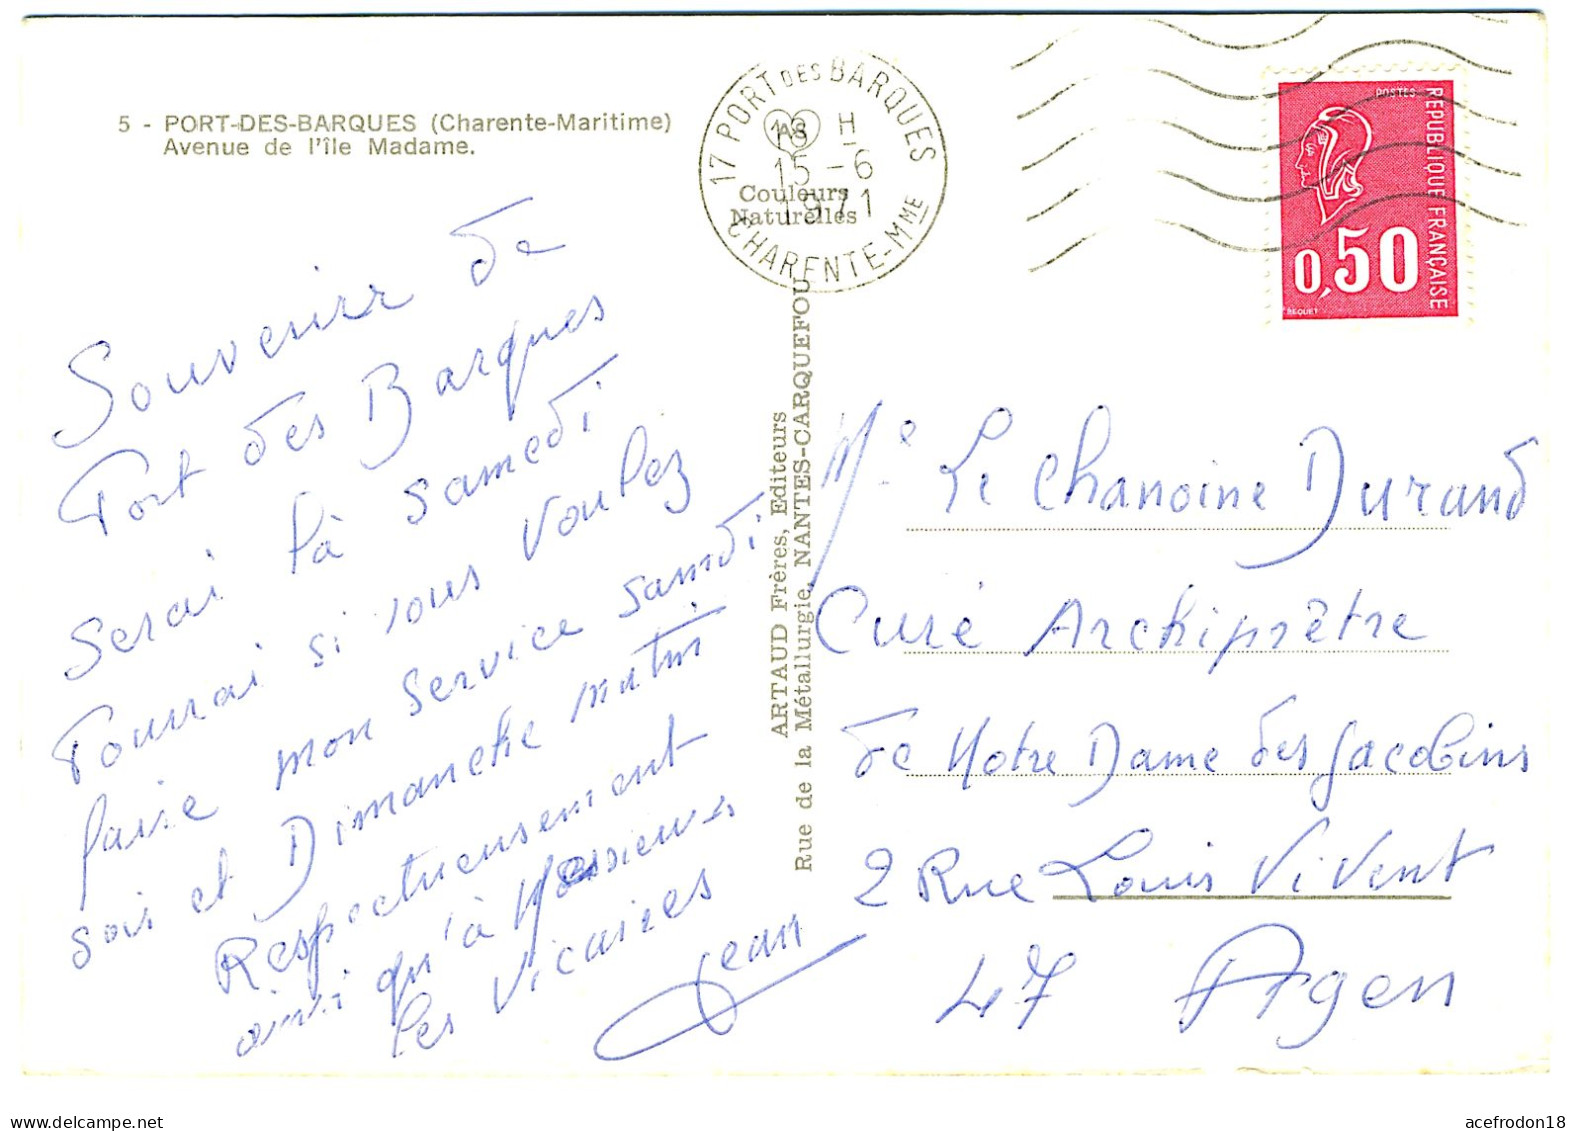 5 - PORT-DES-BARQUES (Charente-Maritime)
Avenue de l'île Madame.
17 PORT DES BARQUES
18 H
15 - 6
1971
CHARENTE-MME
AS
Couleurs
Naturelles
POSTES
REPUBLIQUE FRANÇAISE
0,50
BEQUET
Souvenirr de
Port des Barques
Serai là samedi
Pourrai si vous voulez
faire mon service samdi
soir et Dimanche matin
Respectueusement
ainsi qu'à Messieurs
les Vicaires
Jean
ARTAUD Frères, Editeurs
Rue de la Métallurgie, NANTES-CARQUEFOU
Me Le Chanoine Durand
Curé Archiprêtre
de Notre Dame des Jacobins
2 Rue Louis ViVent
47 Agen
acefrodon18